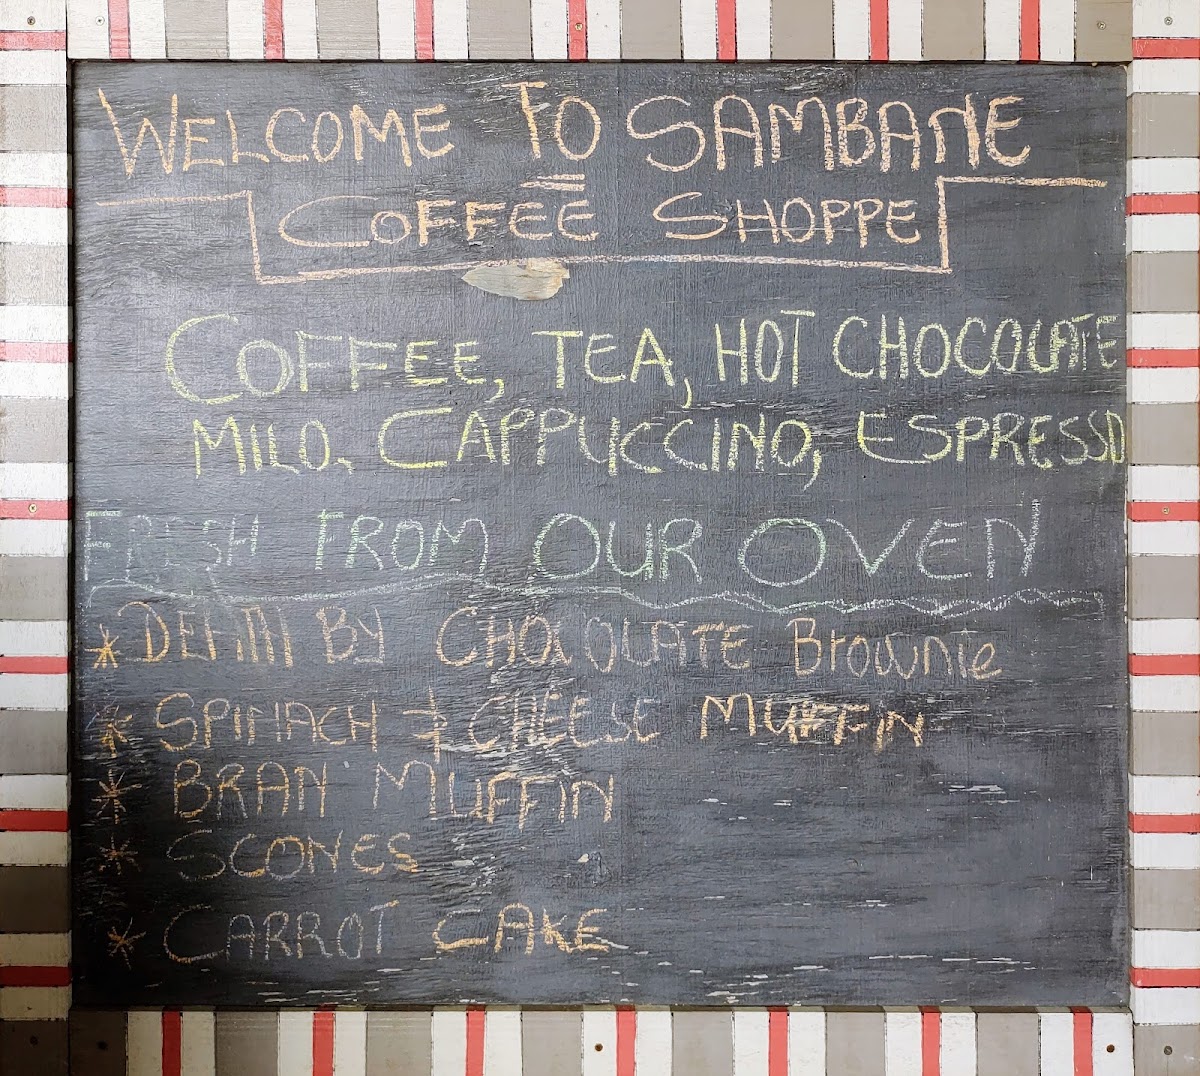 WELCOME TO SAMBANE
COFFEE SHOPPE
COFFEE, TEA, HOT CHOCOLATE
MILO, CAPPUCCINO, ESPRESSO
FRESH FROM OUR OVEN
* DEATH BY CHOCOLATE Brownie
* SPINACH & CHEESE MUFFIN
* BRAN MUFFIN
* SCONES
* CARROT CAKE